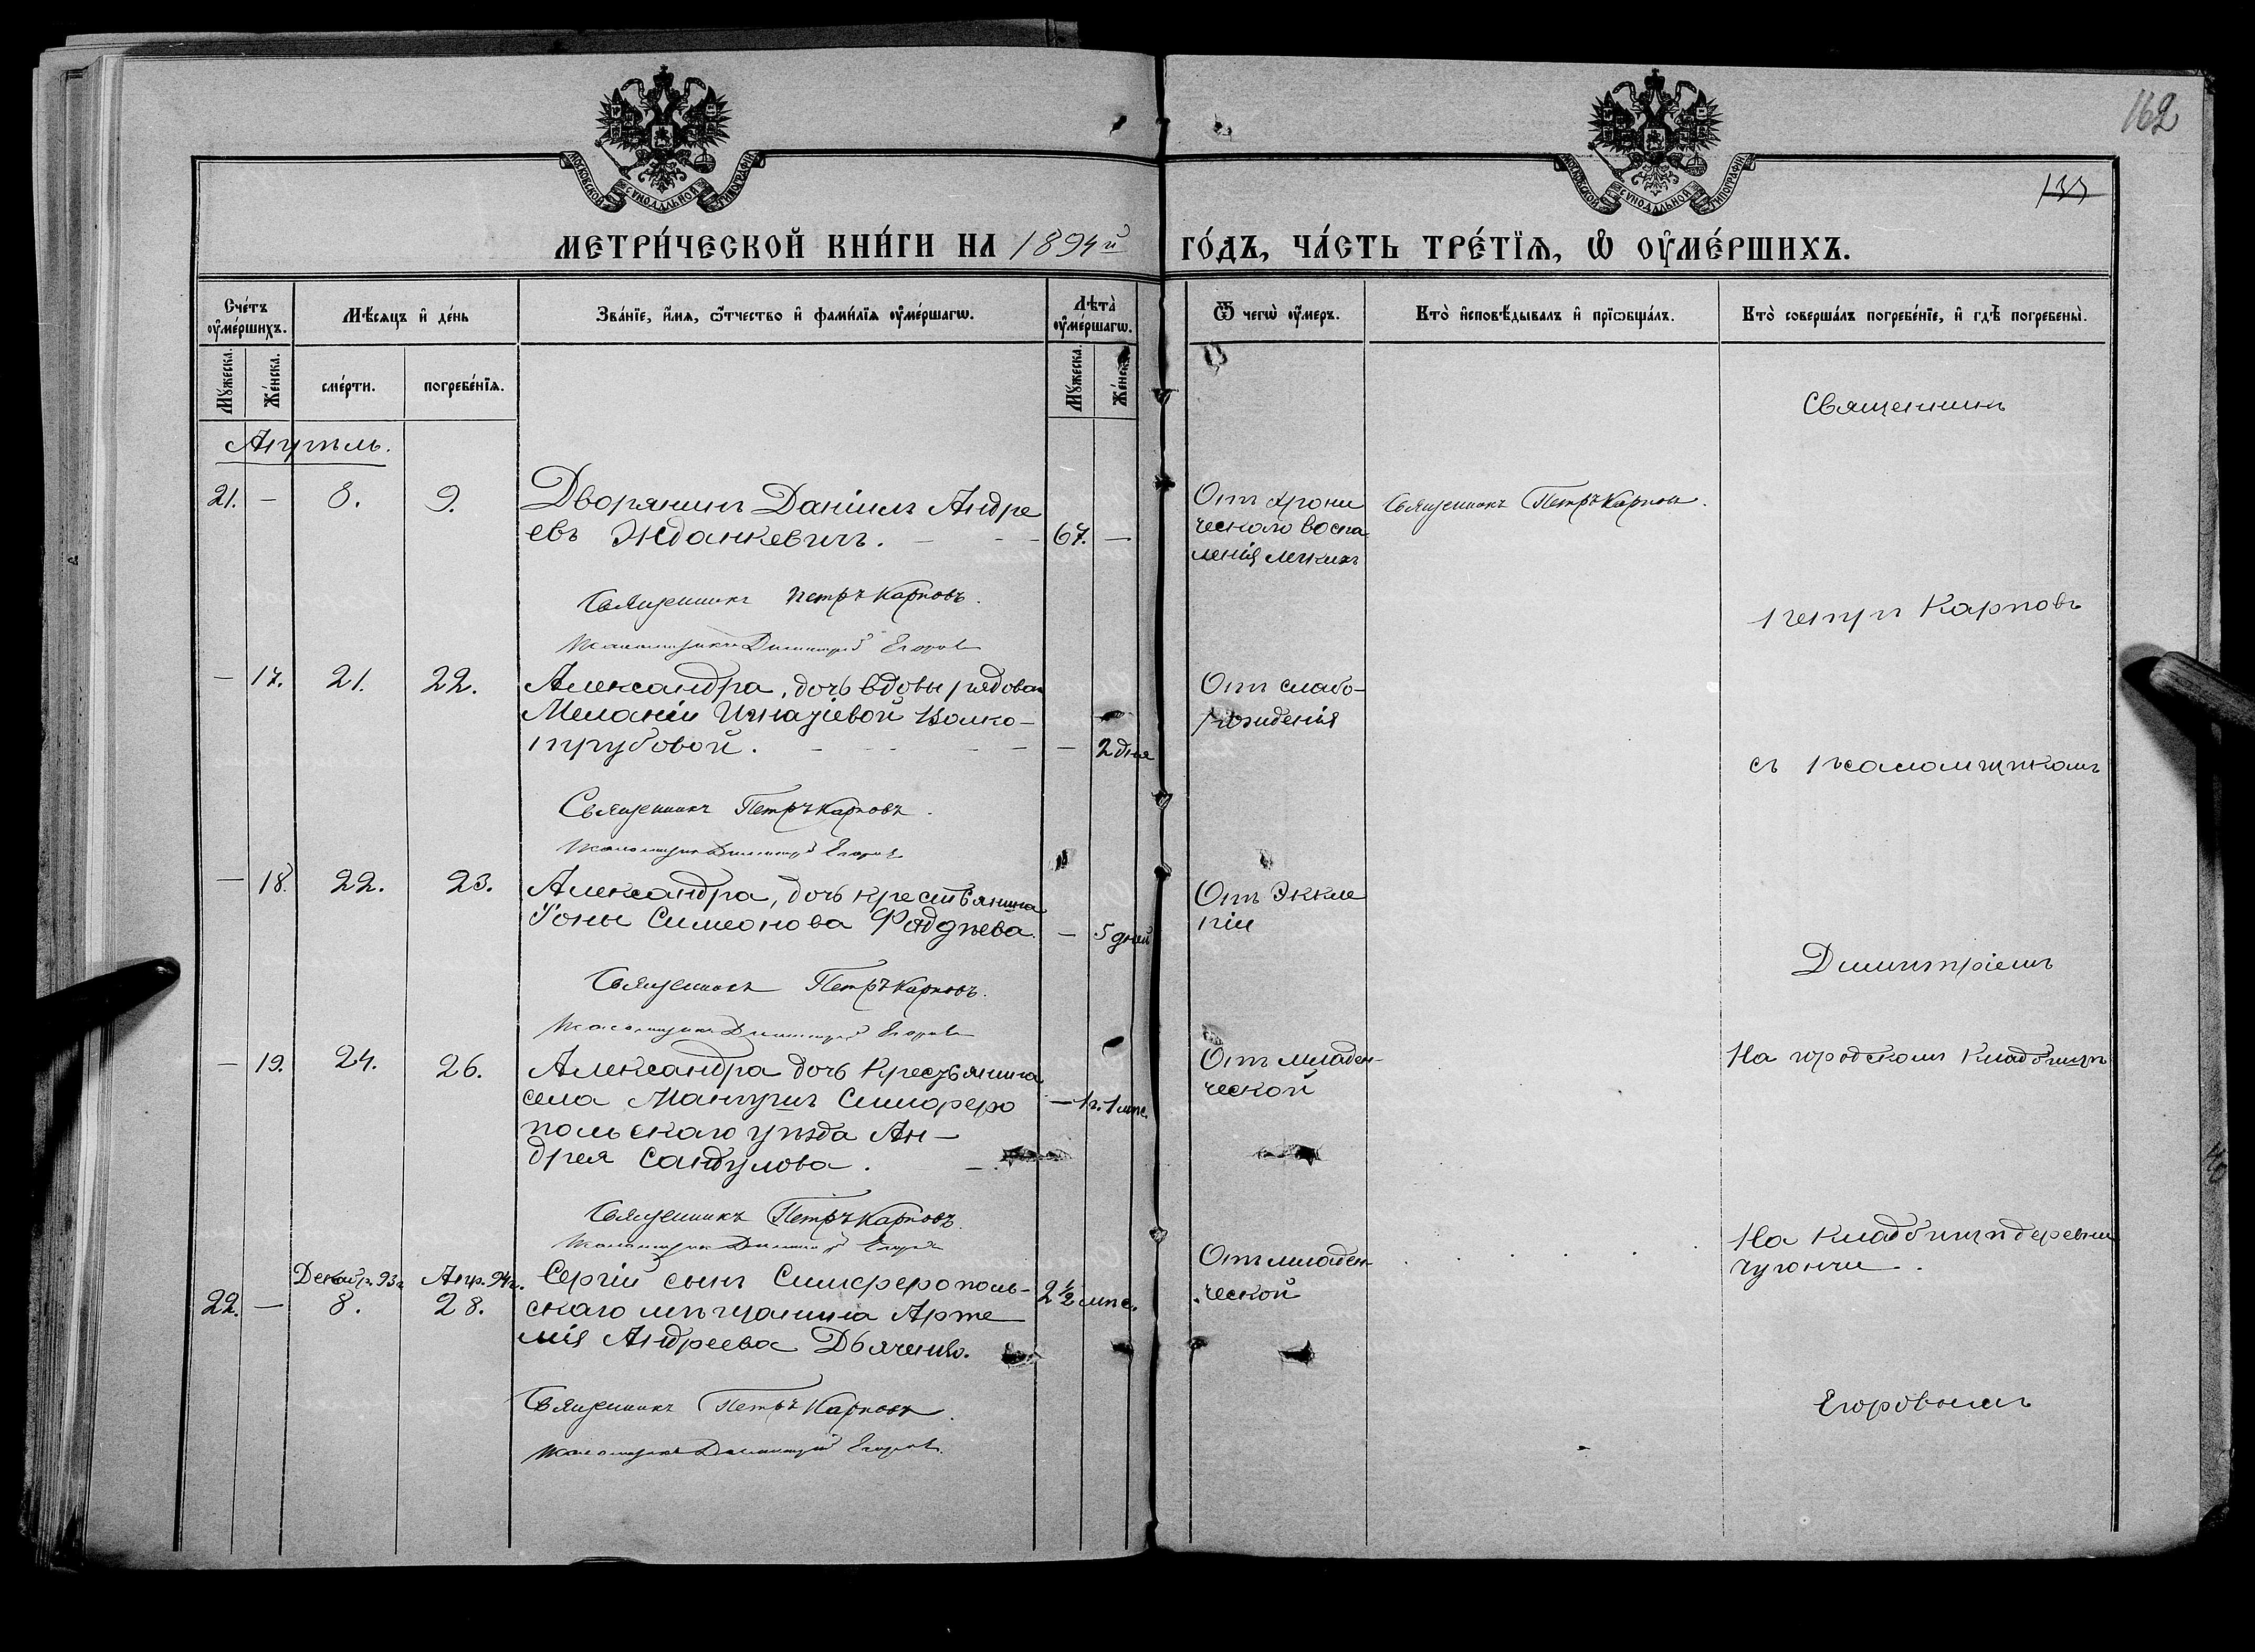 162
133
МОСКОВСКОЙ СѴНОДАЛЬНОЙ ТИПОГРАФІИ
МОСКОВСКОЙ СѴНОДАЛЬНОЙ ТИПОГРАФІИ
МЕТРИ́ЧЕСКОЙ КНИ́ГИ НА 1894й ГО́ДЪ, ЧА́СТЬ ТРЕ́ТЇѦ, Ѡ҆ ОУ҆МЕ́РШИХЪ.
Сче́тъ оу҆ме́ршихъ.
Мѣ́сяцъ и҆ де́нь
Зва́нїе, и҆́мя, ѻ҆́тчество и҆ фами́лїя оу҆ме́ршагѡ.
Лѣта̀ оу҆ме́ршагѡ.
Ѿ чегѡ̀ оу҆́меръ.
Кто̀ и҆сповѣ́дывалъ и҆ прїѡбща́лъ.
Кто̀ соверша́лъ погребе́нїе, и҆ гдѣ̀ погребены̀.
Мꙋ́жеска.
Же́нска.
сме́рти.
погребе́нїя.
Мꙋ́жеска.
Же́нска.
Священникъ
Апрѣль.
21. — 8. 9. Дворянинъ Даніилъ Андре
евъ Жданкевичъ. — 67. —
Отъ хрони
ческаго воспа
ленія легкихъ
Священникъ Петръ Карповъ.
Священникъ Петръ Карповъ.
Псаломщикъ Димитрій Егоровъ
Петръ Карповъ
— 17. 21. 22. Александра, дочь вдовы рядова
Меланіи Игнатіевой Волко-
трубовой. — — 2 дня
Отъ слабо-
рожденія
съ псаломщикомъ
Священникъ Петръ Карповъ.
Псаломщикъ Димитрій Егоровъ
— 18. 22. 23. Александра, дочь крестьянина
Іоны Симеонова Фаддѣева. — 5 дней
Отъ Эккле
піи
Димитріемъ
Священникъ Петръ Карповъ.
Псаломщикъ Димитрій Егоровъ
— 19. 24. 26. Александра дочь крестьянина
села Мангушъ Симферо
польскаго уѣзда Ан-
дрея Сандулова. — 1 г. 1 мѣс.
Отъ младен-
ческой
На городскомъ кладбищѣ
Священникъ Петръ Карповъ.
Псаломщикъ Димитрій Егоровъ
22. — Декабр. 93 г. 8. Апр. 94 г. 28.
Сергій сынъ Симферополь-
скаго мѣщанина Арте
мія Андреева Дьяченко.
2 ½ мѣс.
Отъ младен-
ческой
На кладбищѣ деревни
Егоровымъ
Священникъ Петръ Карповъ.
Псаломщикъ Димитрій Егоровъ.